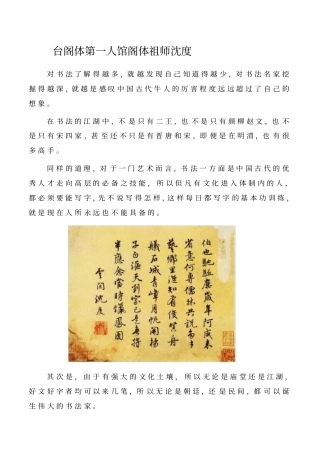 台阁体第一人馆阁体祖师沈度
对书法了解得越多，就越发现自己知道得越少，对书法名家挖
掘得越深，就越是感叹中国古代牛人的厉害程度远远超过了自己的
想象。
在书法的江湖中，不是只有二王，也不是只有颜柳赵文，也不
是只有宋四家，甚至还不只是有晋唐和宋，即便是在明清，也有很
多高手。
同样的道理，对于一门艺术而言，书法一方面是中国古代的优
秀人才走向高层的必备之技能，所以但凡有文化进入体制内的人，
都必须要能写字，先不说写得怎样，这样每日都写字的基本功训练，
就是现在人所永远也不能具备的。
其次是，由于有强大的文化土壤，所以无论是庙堂还是江湖，
好文好字者均可以来几笔，所以无论是朝廷，还是民间，都可以诞
生伟大的书法家。